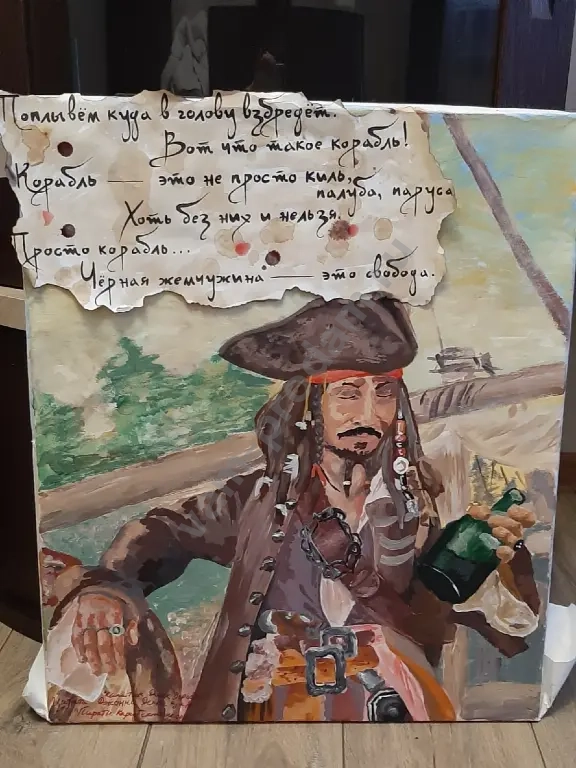 Поплывём куда в голову взбредёт.
Вот что такое корабль!
Корабль — это не просто киль,
палуба, паруса
Хоть без них и нельзя.
Просто корабль...
Чёрная жемчужина — это свобода.